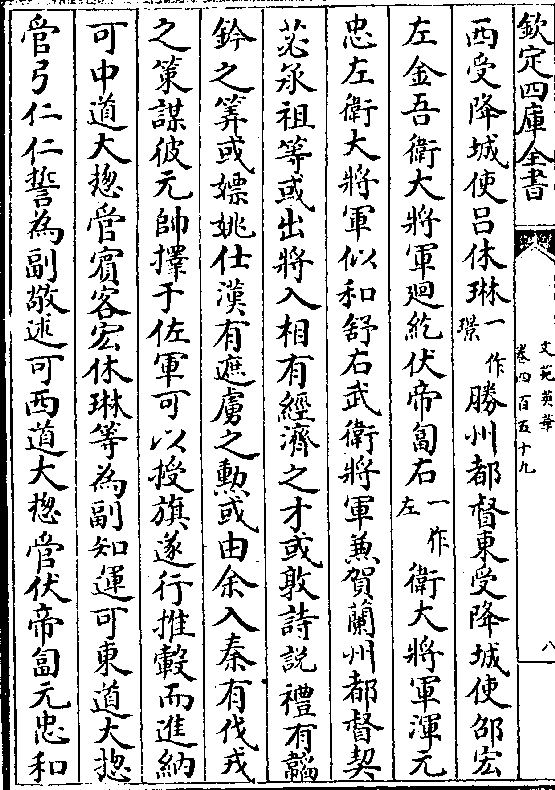 欽定四庫全書
文苑英華
卷四百五十九
八
西受降城使吕休琳一作璟勝州都督東受降城使邵宏
左金吾衛大將軍廻紇伏帝匐右一作左衛大將軍渾元
忠左衛大將軍似和舒右武衛將軍兼賀蘭州都督契
苾承祖等或出將入相有經濟之才或敦詩説禮有韜
鈐之筭或嫖姚仕漢有遮虜之勲或由余入秦有伐戎
之策謀彼元帥擇于佐軍可以授旗遂行推轂而進納
可中道大揔管賔客宏休琳等為副知運可東道大揔
管弓仁仁誓為副敬述可西道大揔管伏帝匐元忠和